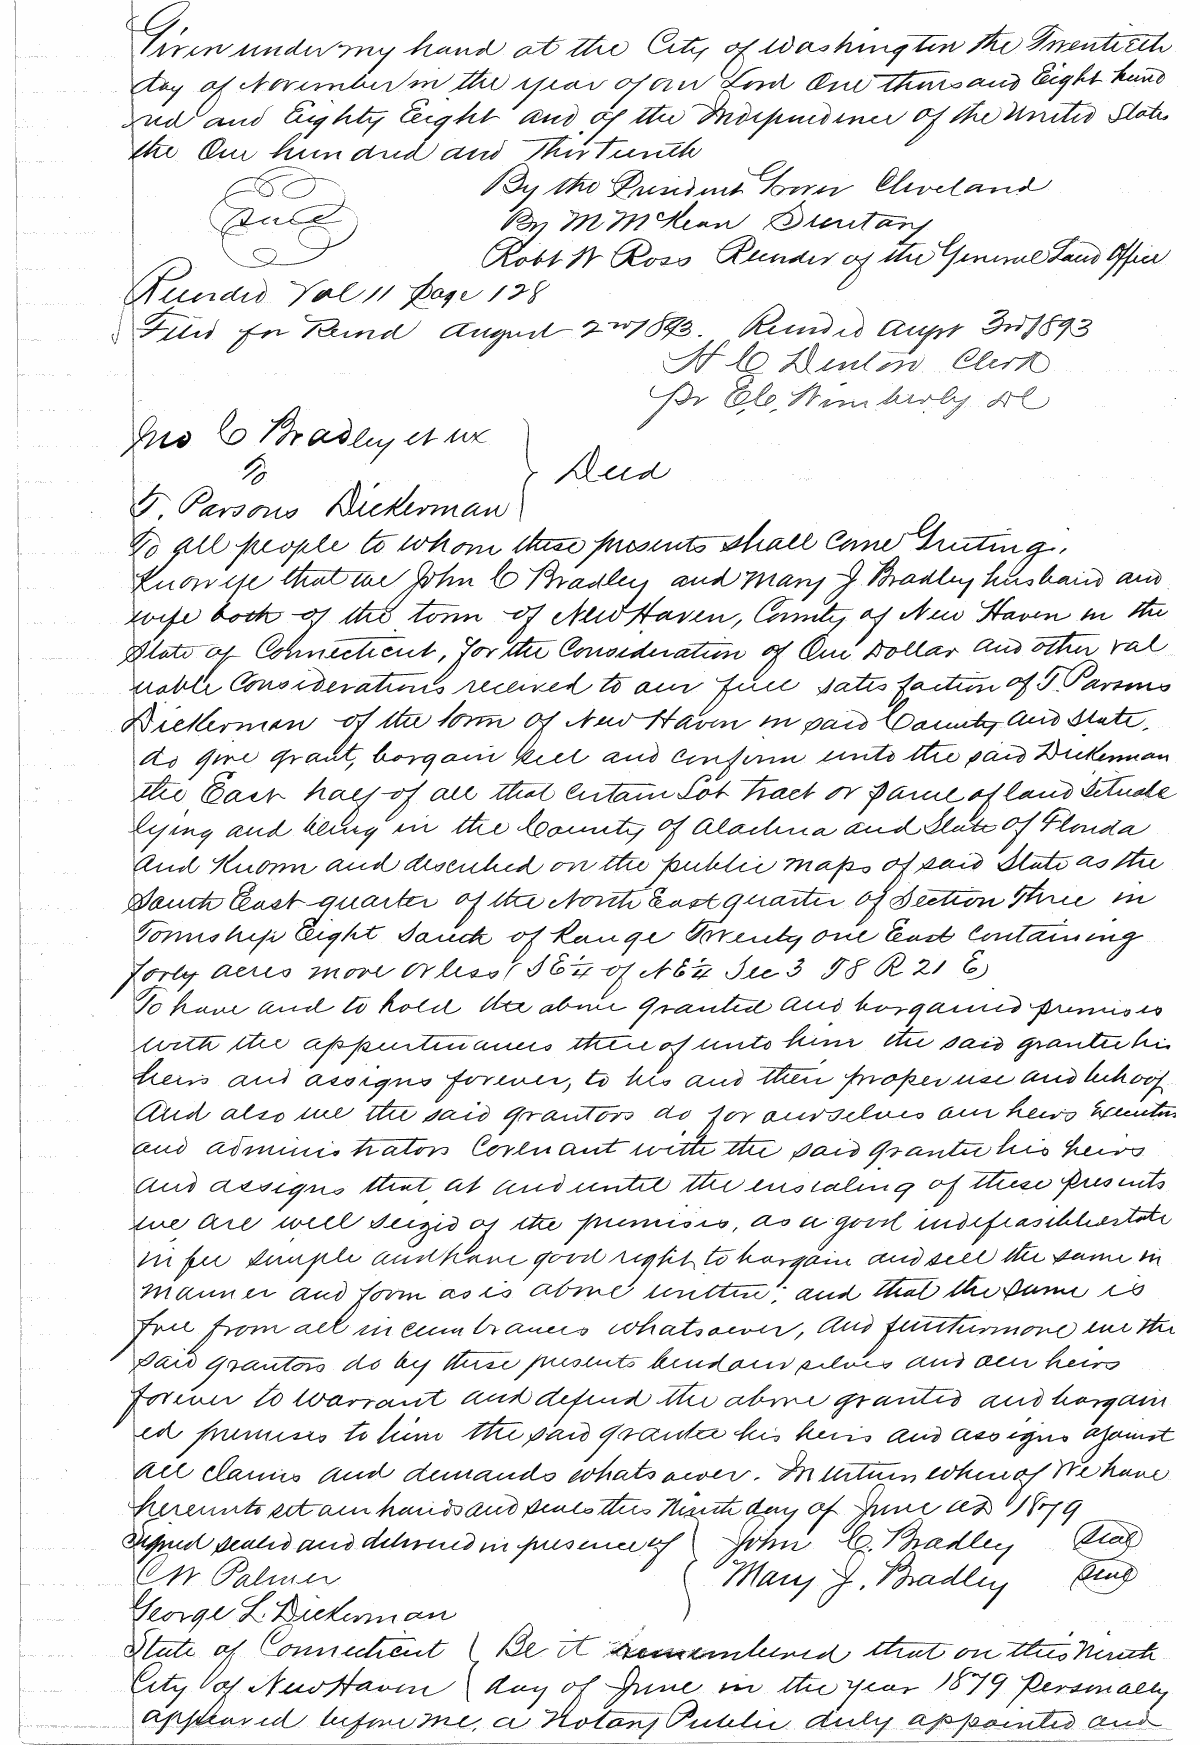 Given under my hand at the City of Washington the Twentieth
day of November in the year of our Lord One thousand Eight hund
red and Eighty Eight and of the Independence of the United States
the One hundred and Thirteenth
By the President Grover Cleveland
Seal
By M McKean Secretary
Robt W Ross Recorder of the General Land Office
Recorded Vol 11 Page 128
Filed for Record August 2nd 1893. Recorded Augst 3rd 1893
H C Denton Clerk
Pr E.C. Wimberly DC
Jno C Bradley et ux
To
Deed
T. Parsons Dickerman
To all people to whom these presents shall come Greeting.
Know ye that we John C Bradley and Mary J Bradley husband and
wife both of the town of New Haven, County of New Haven in the
State of Connecticut, for the Consideration of One Dollar and other val
uable Considerations received to our full satisfaction of T. Parsons
Dickerman of the town of New Haven in said County and State,
do give grant, bargain sell and confirm unto the said Dickerman
the East half of all that certain Lot tract or parcel of land Situate
lying and being in the County of Alachua and State of Florida
And Known and described on the public maps of said State as the
South East quarter of the North East quarter of Section Three in
Township Eight South of Range Twenty one East Containing
forty acres more or less (SE¼ of NE¼ Sec 3 T8 R 21 E)
To have and to hold the above granted and bargained premises
with the appurtenances thereof unto him the said grantee his
heirs and assigns forever, to his and their proper use and behoof
And also we the said grantors do for ourselves our heirs Executors
and administrators Covenant with the said grantee his heirs
and assigns that at and until the ensealing of these presents
we are well Seized of the premises, as a good indefeasible estate
in fee simple and have good right to bargain and sell the same in
manner and form as is above written; and that the same is
free from all incumbrances whatsoever, And furthermore we the
said grantors do by these presents bind ourselves and our heirs
forever to Warrant and defend the above granted and bargain
ed premises to him the said grantee his heirs and assigns against
all claims and demands whatsoever. In witness whereof We have
hereunto set our hands and seals this Ninth day of June AD 1879
Signed sealed and delivered in presence of John C. Bradley Seal
C W Palmer Mary J. Bradley Seal
George L. Dickerman
State of Connecticut Be it remembered that on this Ninth
City of New Haven day of June in the year 1879 Personally
appeared before me, a Notary Public duly appointed and